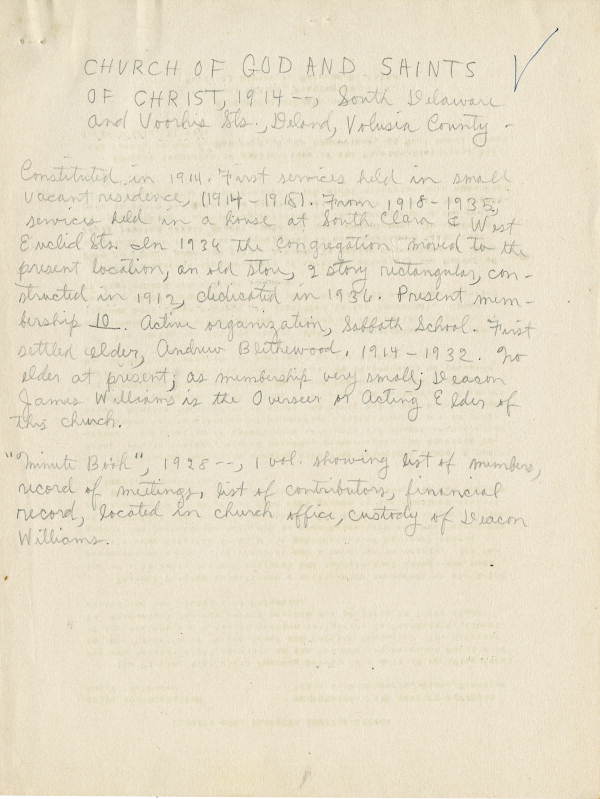 CHURCH OF GOD AND SAINTS
OF CHRIST, 1914--, South Delaware
and Voorhis Sts., Deland, Volusia County -
Constituted in 1914. First services held in small
vacant residence, (1914-1918). From 1918-1935,
services held in a house at South Clara & West
Euclid Sts. In 1936 the congregation moved to the
present location, an old store, 2 story rectangular, con-
structed in 1912, dedicated in 1936. Present mem-
bership 10. Active organization, Sabbath School. First
settled elder, Andrew Blithewood, 1914-1932. No
elder at present; as membership very small; Deacon
James Williams is the Overseer or Acting Elder of
this church.
"Minute Book", 1928--, 1 vol. showing list of members,
record of meetings, list of contributors, financial
record, located in church office, custody of Deacon
Williams.